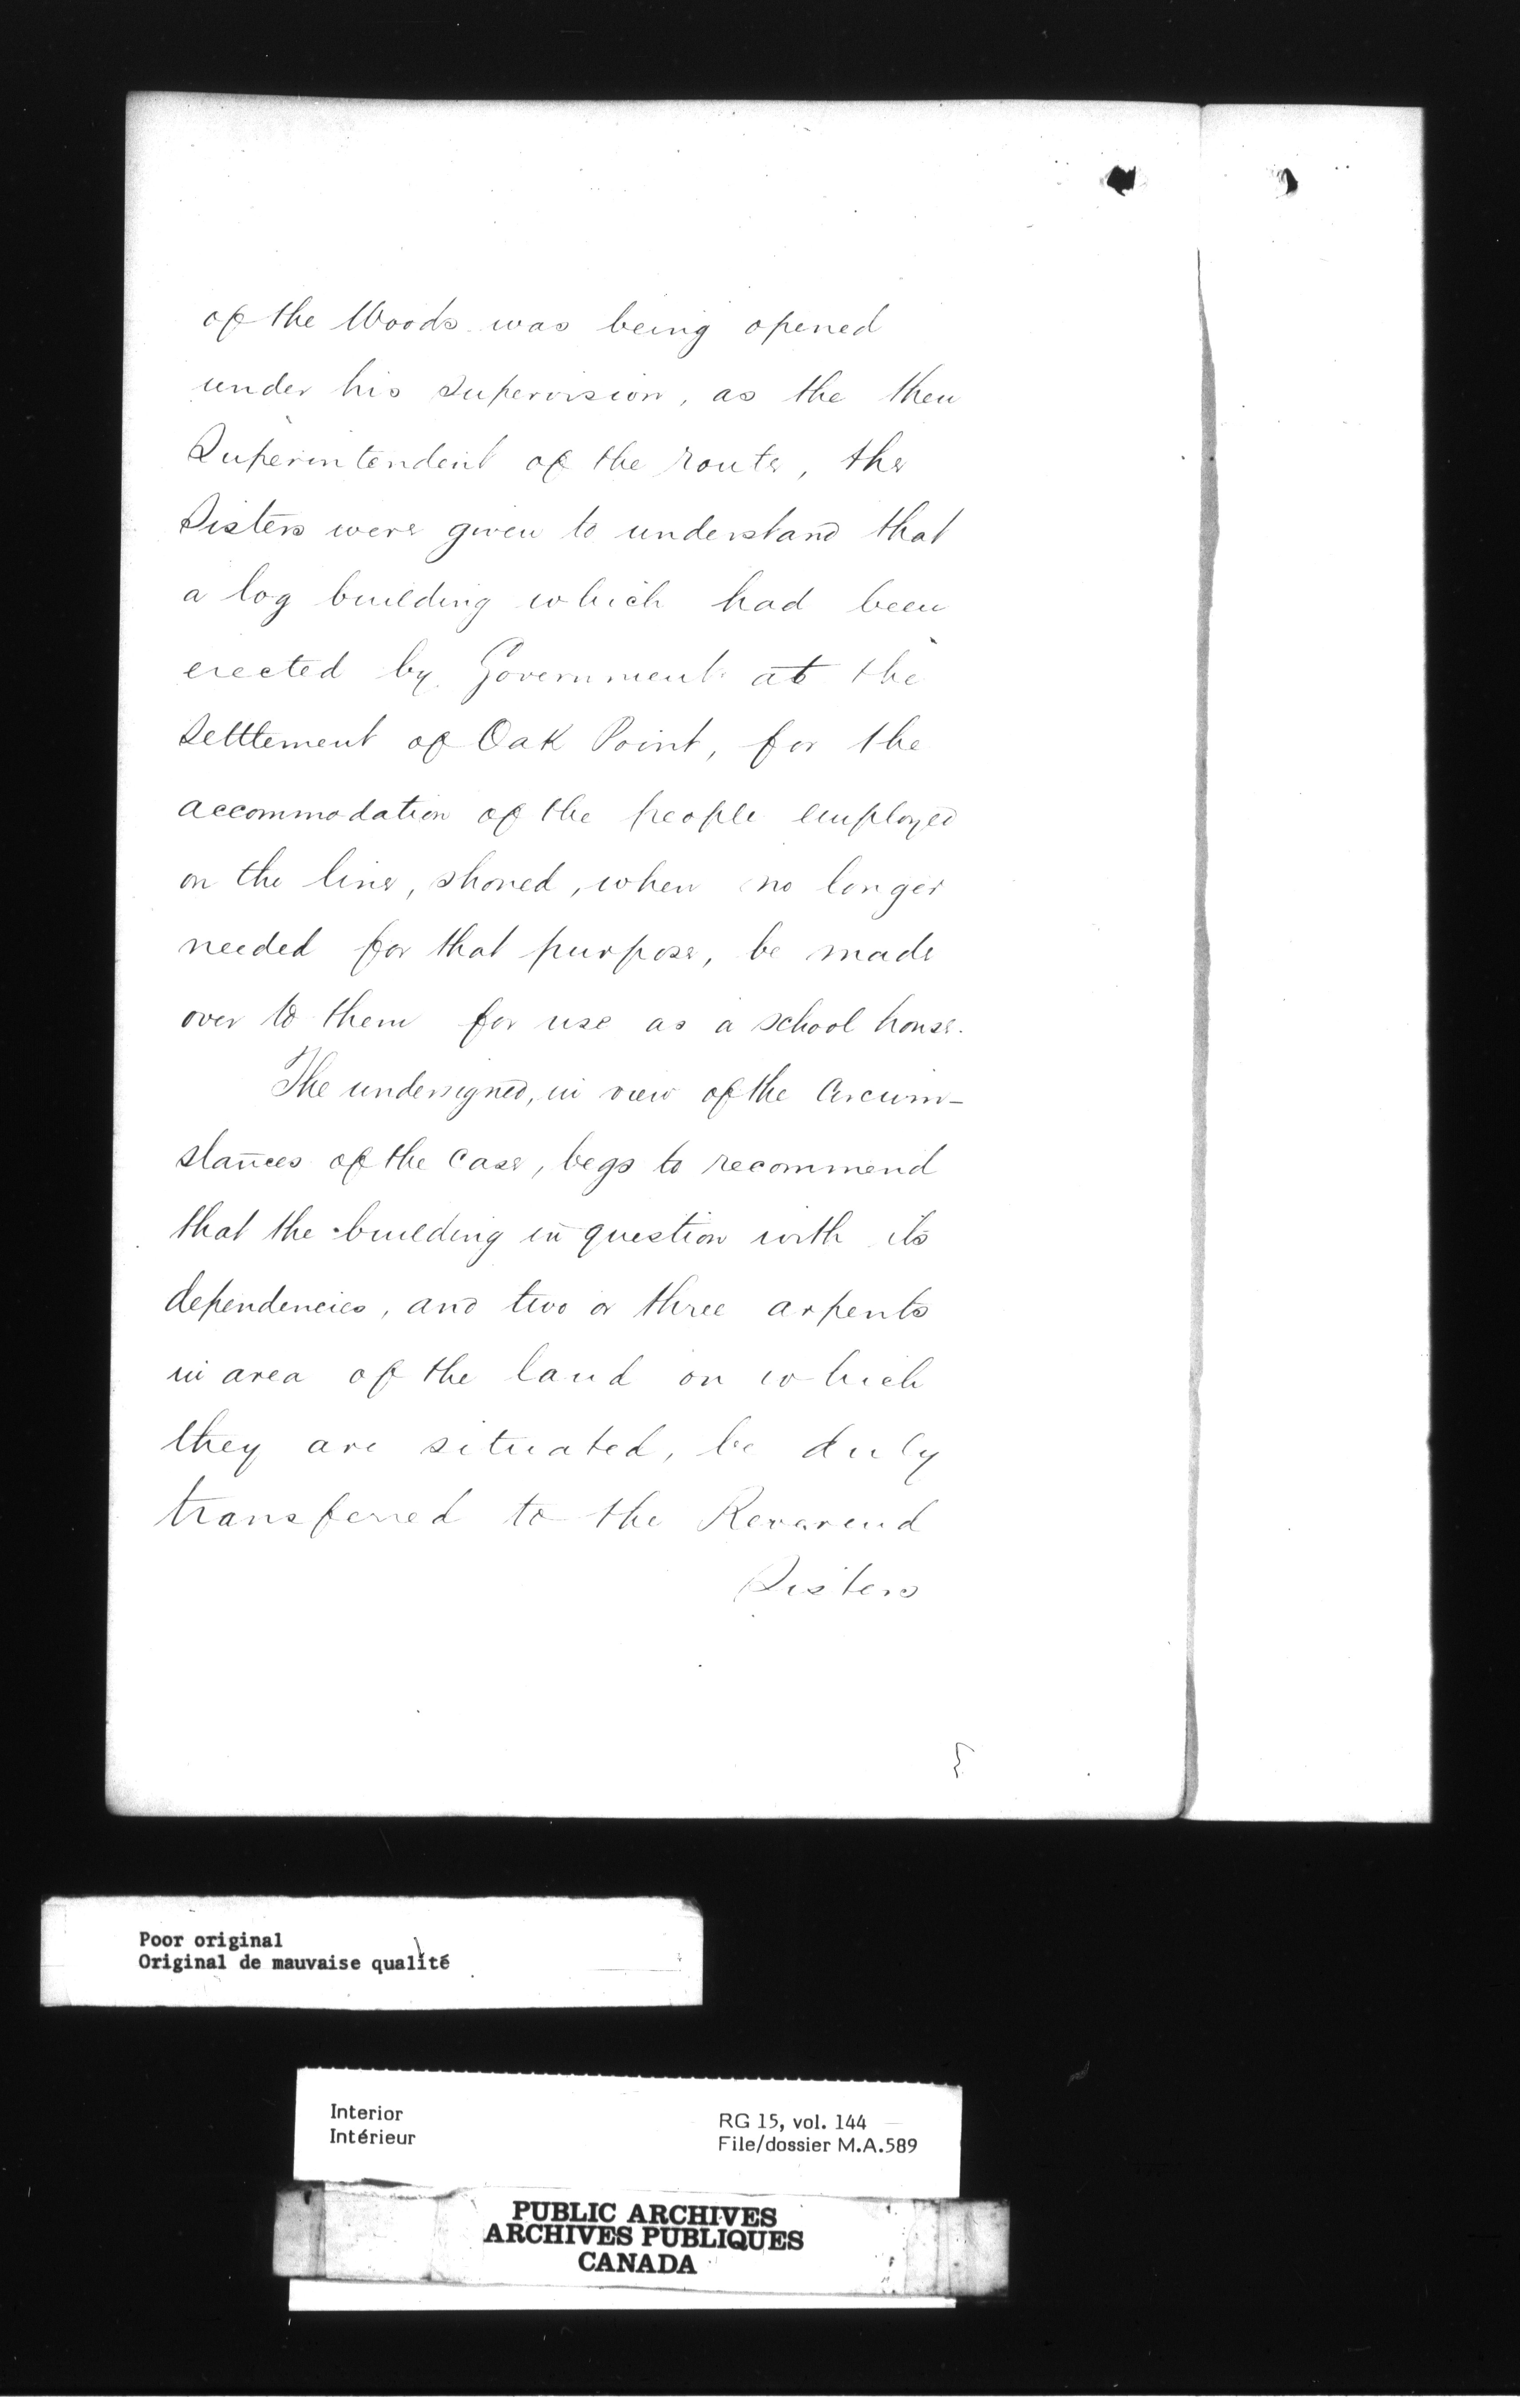 of the Woods was being opened
under his supervision, as the then
Superintendent of the route, the
Sisters were given to understand that
a log building which had been
erected by Government at the
settlement of Oak Point, for the
accommodation of the people employed
on the line, should, when no longer
needed for that purpose, be made
over to them for use as a school house.
The undersigned, in view of the Circum-
stances of the case, begs to recommend
that the building in question with its
dependencies, and two or three arpents
in area of the land on which
they are situated, be duly
transferred to the Reverend
Sisters
Poor original
Original de mauvaise qualité
Interior
Intérieur
RG 15, vol. 144
File/dossier M.A.589
PUBLIC ARCHIVES
ARCHIVES PUBLIQUES
CANADA